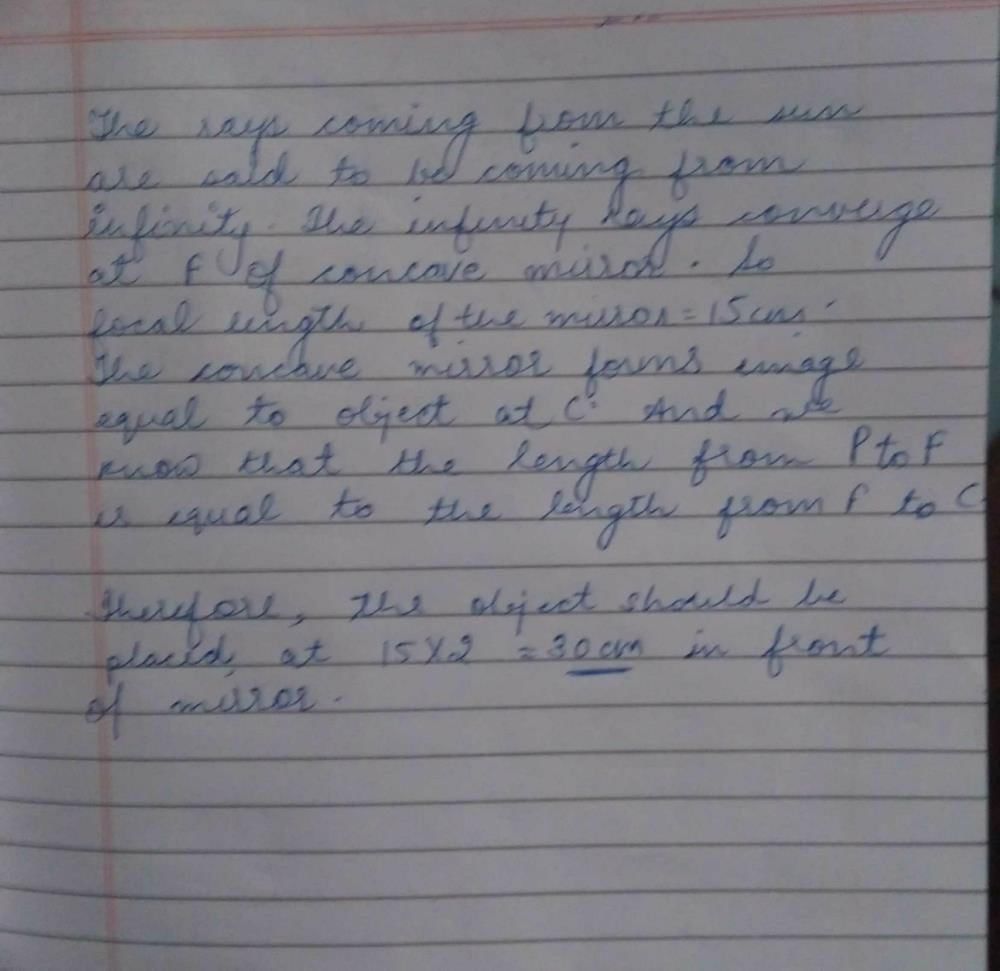 The rays coming from the sun
are said to be coming from
infinity. The infinity rays converge
at F of concave mirror. So
focal length of the mirror = 15 cm.
The concave mirror forms image
equal to object at C. And we
know that the length from P to F
is equal to the length from F to C
Therefore, the object should be
placed at 15 X 2 = 30 cm in front
of mirror.